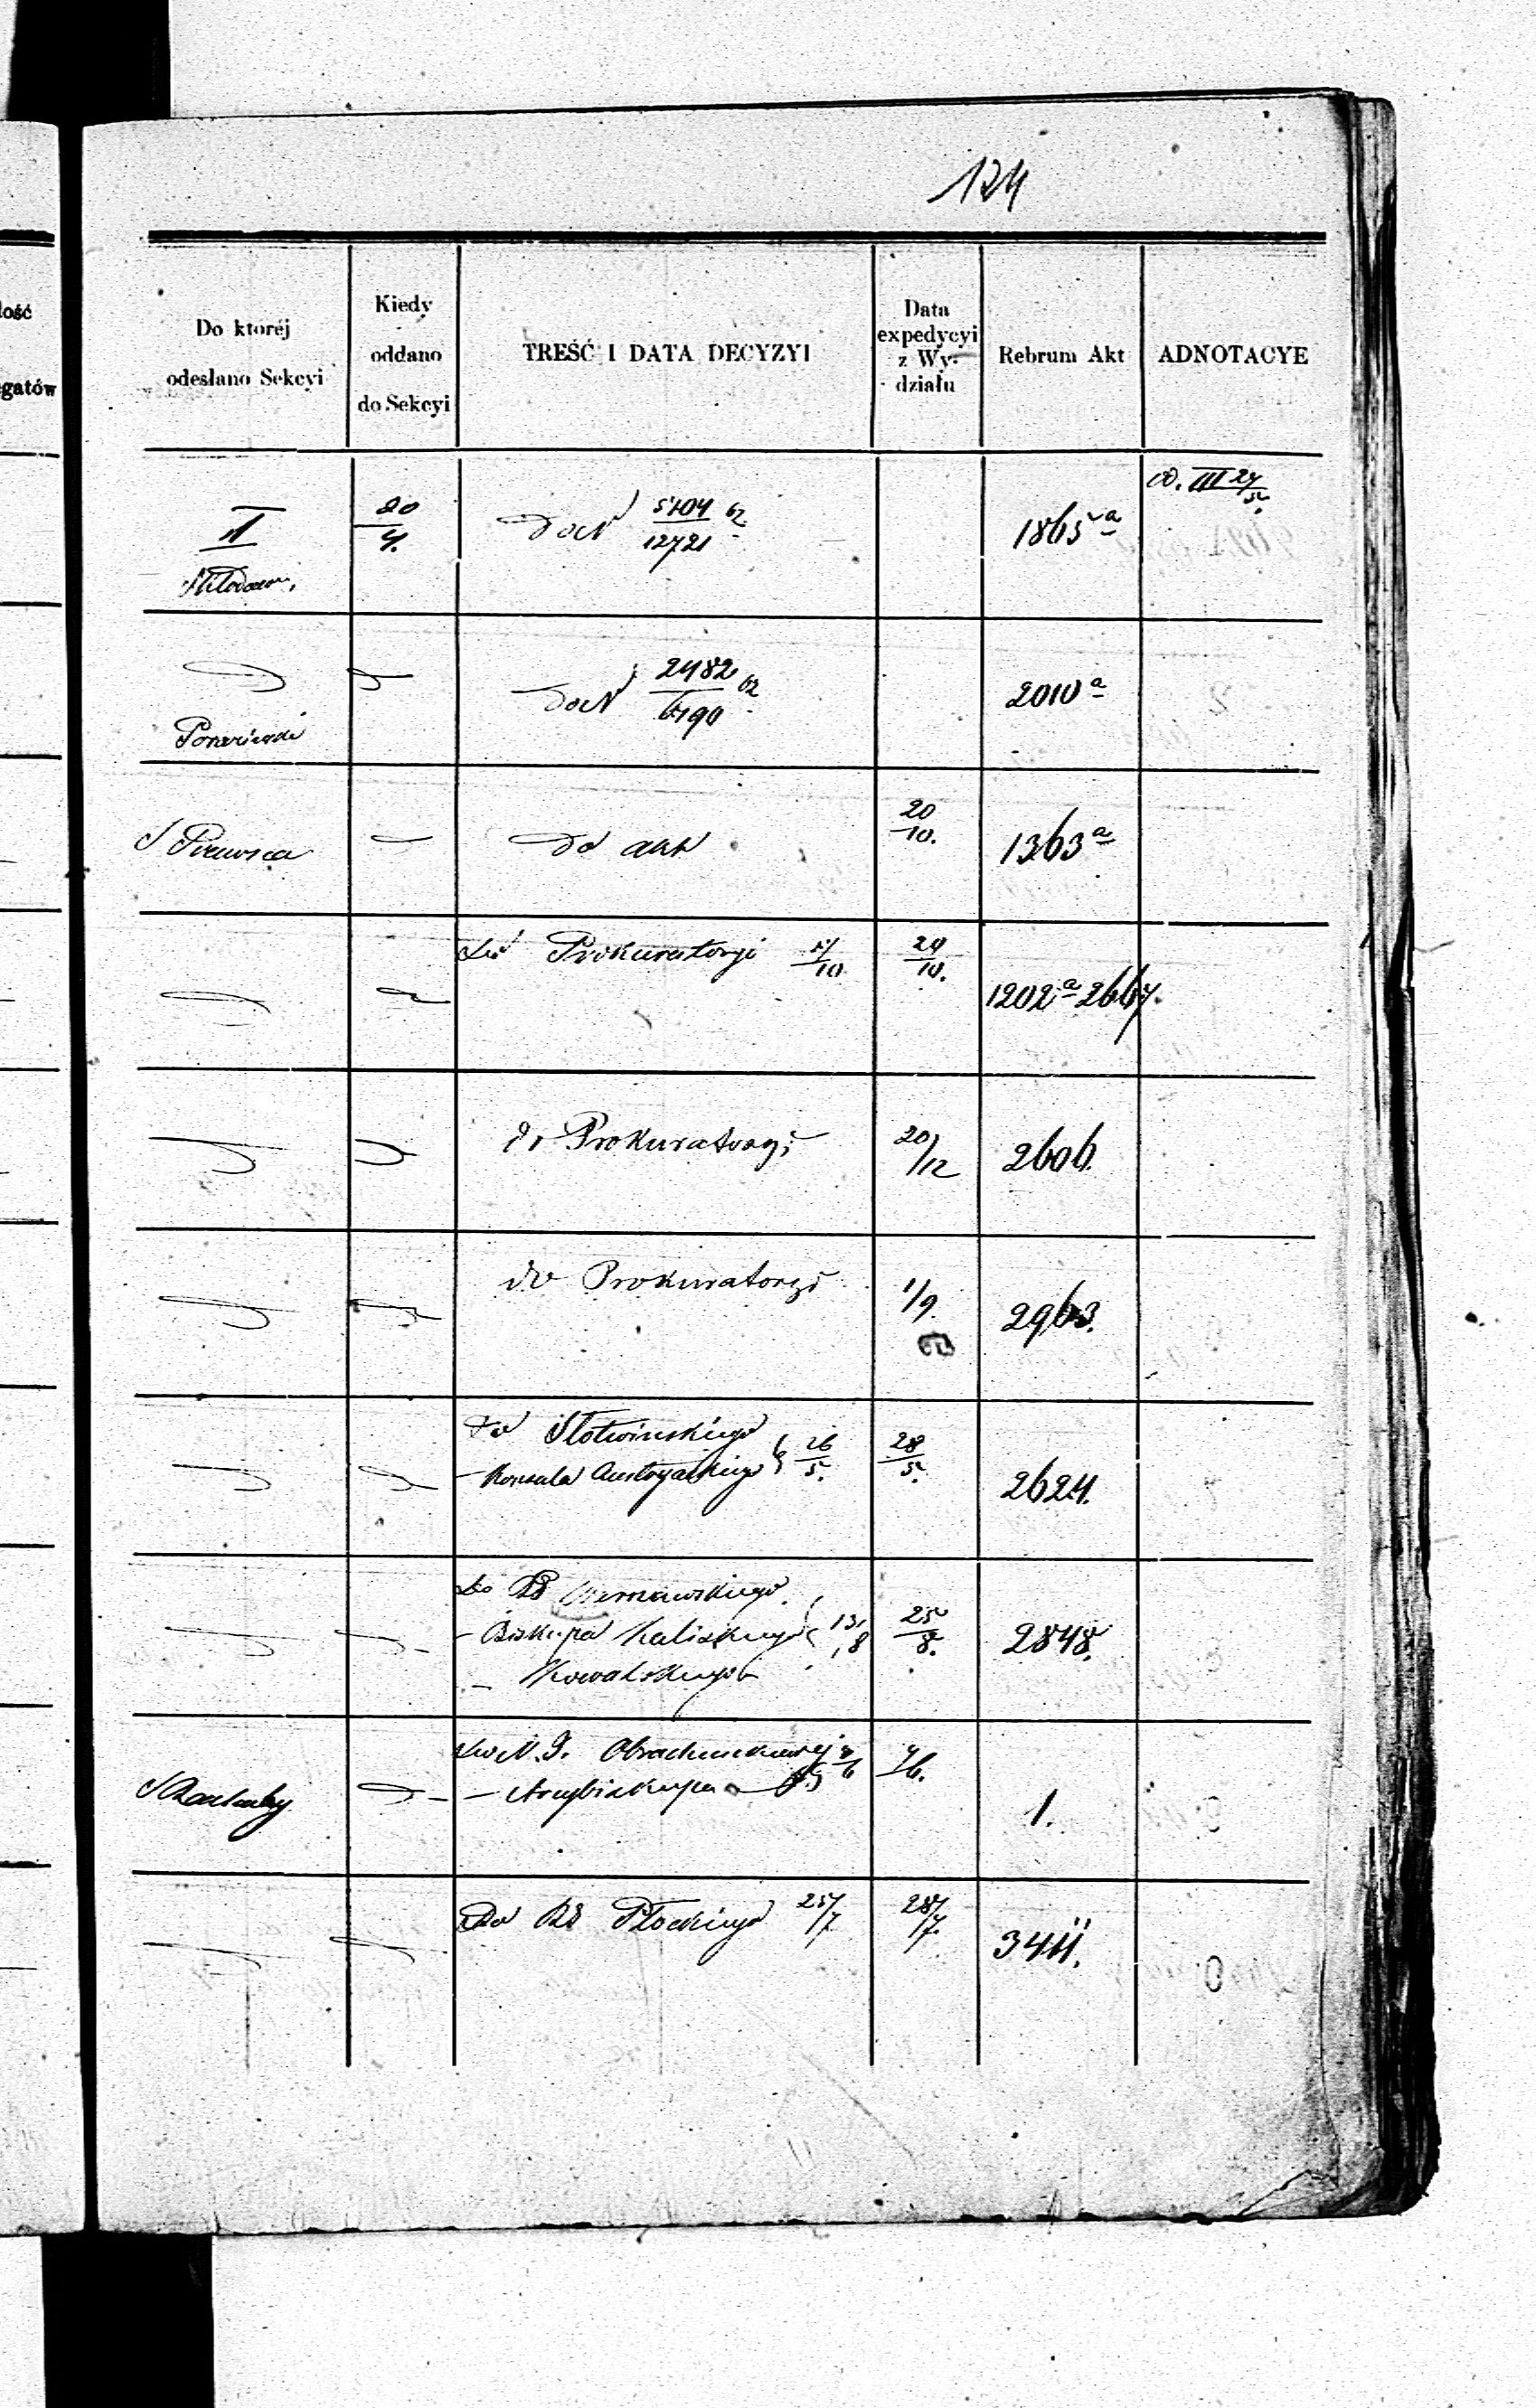 124
łość
egatów
Do której
odesłano Sekcyi
Kiedy
oddano
do Sekcyi
TREŚĆ I DATA DECYZYI
Data
expedycyi
z Wy-
działu
Rebrum Akt
ADNOTACYE
II
20/4.
do N 5404/12721 62
1865 a
III 27/5
do N 2482/6190 62
2010 a
do akt
20/10.
1363 a
do Prokuratorji 17/10
20/10.
1202 a 2667.
do Prokuratorji
20/12
2606.
do Prokuratorji
1/9.
2963.
do Słotwińskiego
- Konsula Austryackiego } 26/5.
28/5.
2624.
do RG Warszawskiego
- Biskupa Kaliskiego 13/8
- Kowalskiego
25/8.
2848.
do N. I. Obrachunkowej
- Arcybiskupa
1.
Do RG Płockiego 25/7
28/7.
3411.